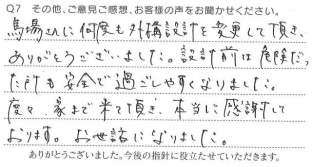 Q7 その他、ご意見ご感想、お客様の声をお聞かせください。
馬場さんに何度も外構設計を変更して頂き、
ありがとうございました。設計前は危険だっ
たけども安全で過ごしやすくなりました。
度々、家まで来て頂き、本当に感謝して
おります。お世話になりました。
ありがとうございました。今後の指針に役立たせていただきます。